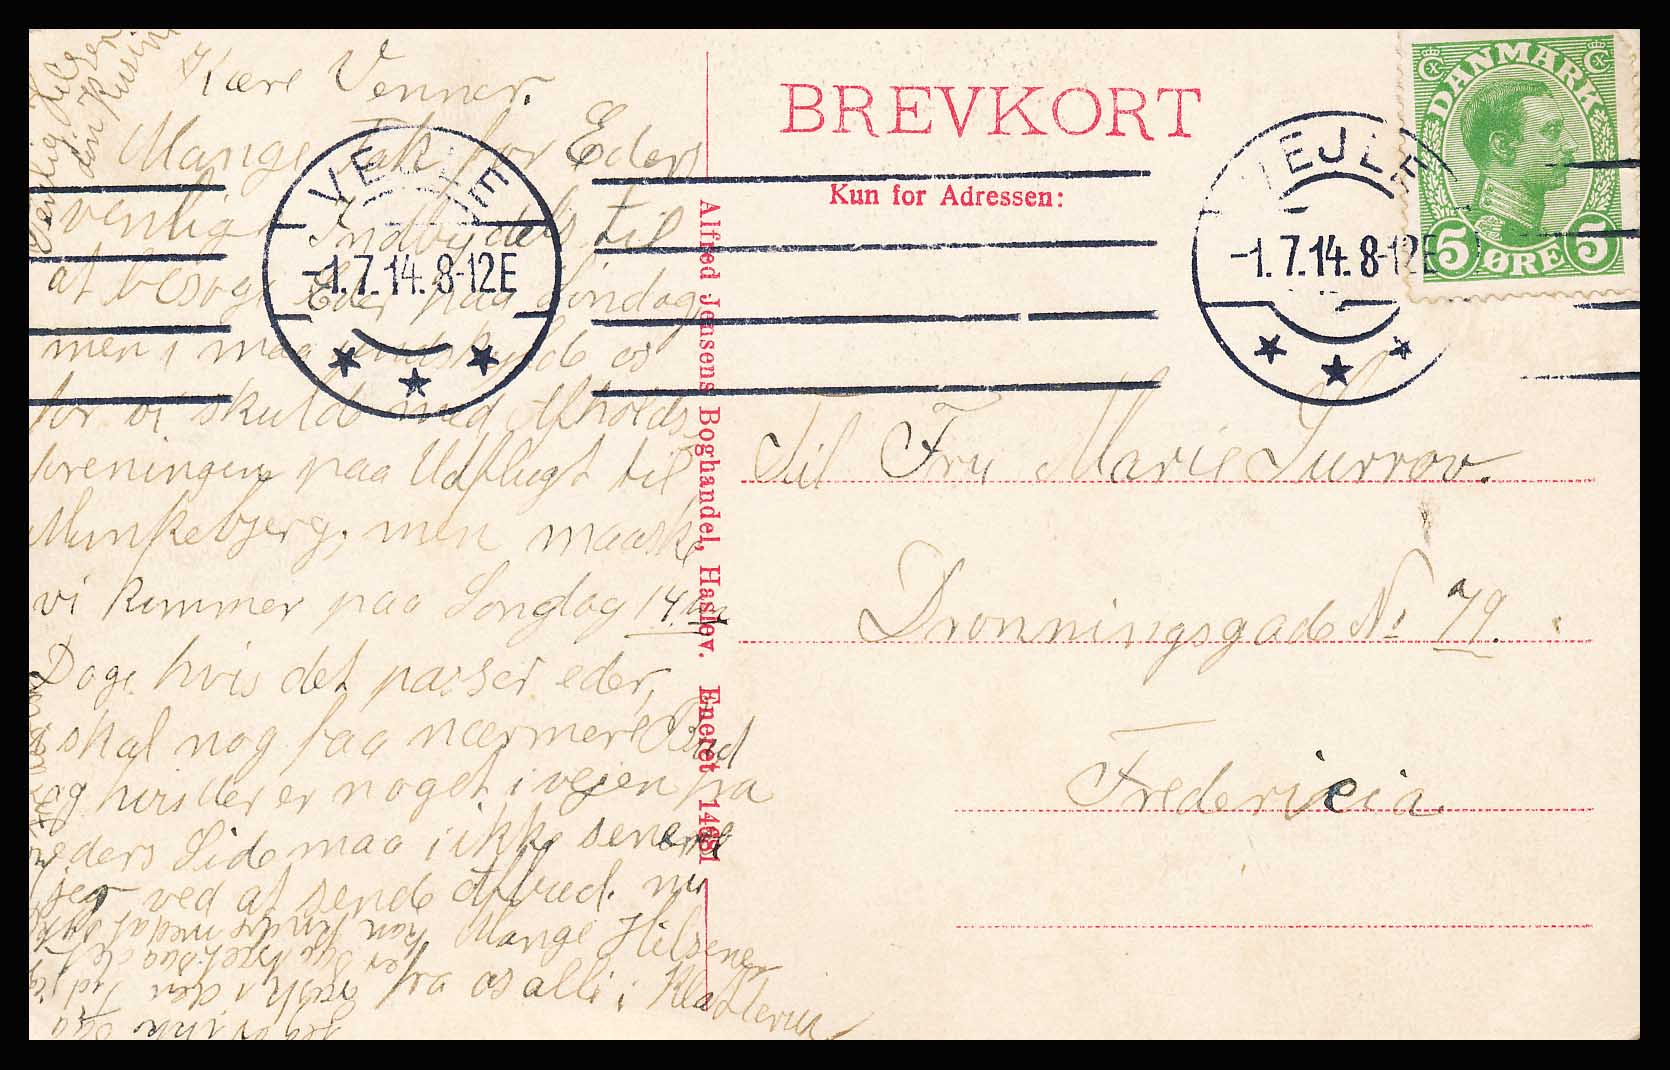 Kære Venner.
Mange Tak for Eders
venlig Indbydels til
at besøge Eder paa Søndag
men i maa undskylde os
for vi skulde med Afholds
foreningen paa Udflugt til
Munkebjerg, men maaske
vi kommer paa Søndag 14
Dage hvis det passer eder,
skal nog faa nærmere Bud
og hvis der er noget i vejen fra
eders Side maa i ikke senere
ved at sende Afbud. nu
Mange Hilsener
fra os alle i
BREVKORT
Kun for Adressen:
Alfred Jensens Boghandel, Haslev. Eneret 14681
VEJLE
-1.7.14. 8-12E
VEJLE
-1.7.14. 8-12E
DANMARK
5 ØRE 5
Til Fru Marie Surrow.
Dronningsgade No 79.
Fredericia